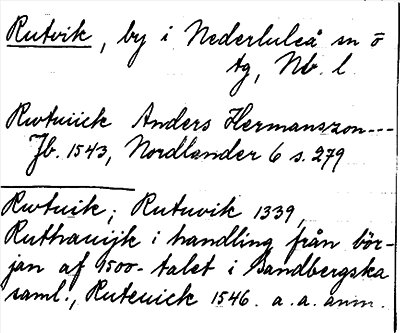 Rutvik, by i Nederluleå sn o
tg, Nb. l.
Rwtuiick Anders Hermanszon---
Jb. 1543, Nordlander 6 s. 279
Rwtuik; Rutuvik 1339,
Ruthauijk i handling från bör-
jan af 1500-talet i Sandbergska
saml., Ruteuick 1546. a. a. anm.